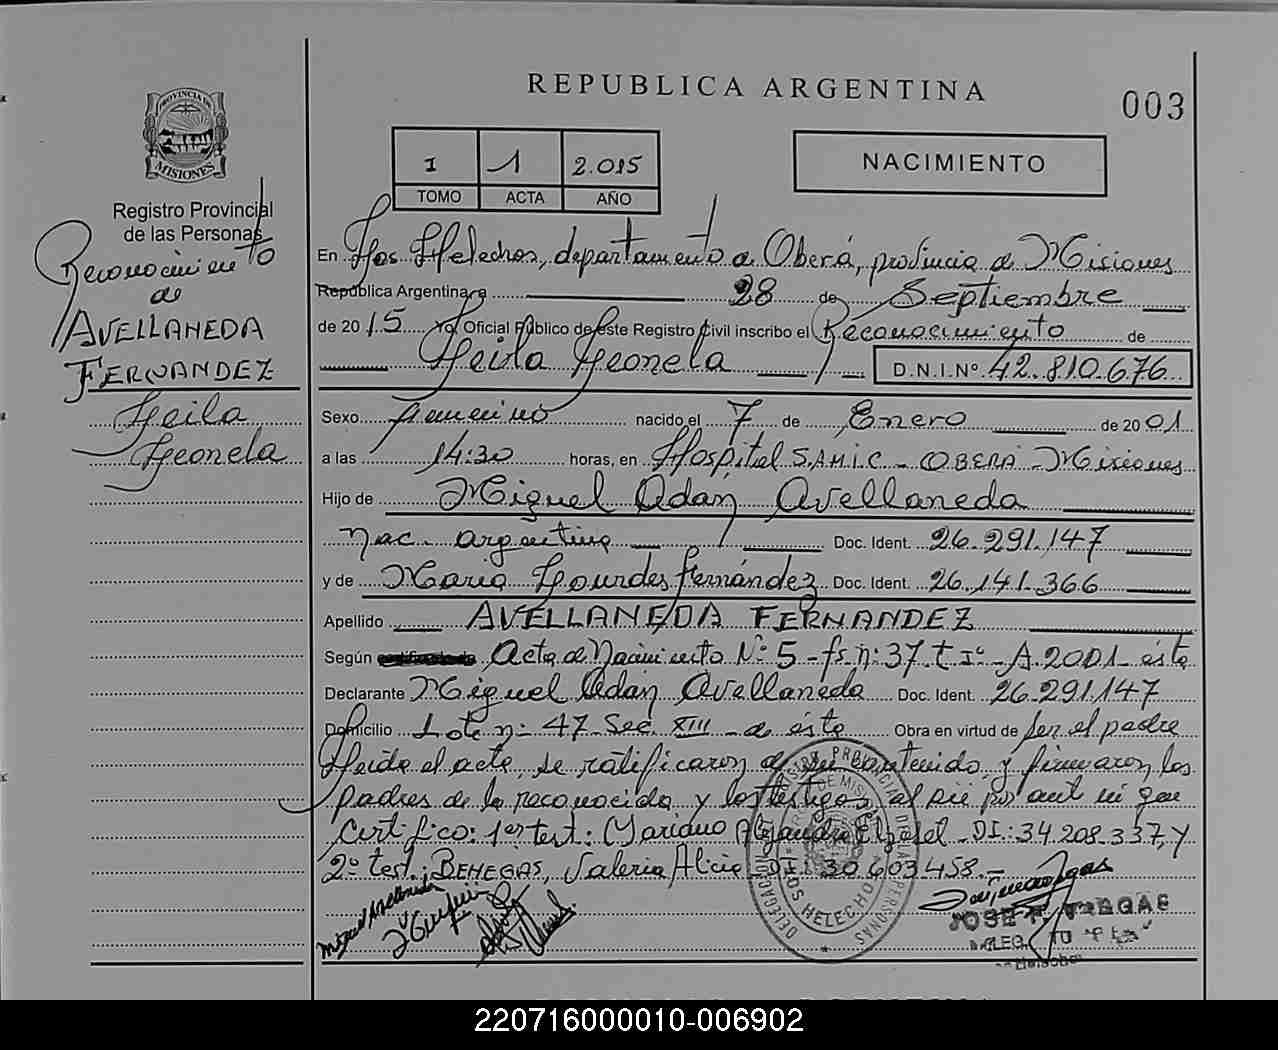 REPUBLICA ARGENTINA
003
PROVINCIA DE
MISIONES
Registro Provincial
de las Personas
Reconocimiento
de
AVELLANEDA
FERNANDEZ
Leila
Leonela
I 1 2.015
TOMO ACTA AÑO
NACIMIENTO
En Los Helechos, departamento de Oberá, provincia de Misiones
República Argentina, a 28 de Septiembre
de 2015 Yo, Oficial Público de este Registro Civil inscribo el Reconocimiento de
Leila Leonela D.N.I.Nº 42.810.676
Sexo femenino nacido el 7 de Enero de 2001
a las 14:30 horas, en Hospital S.A.M.I.C - OBERÁ - Misiones
Hijo de Miguel Adan Avellaneda
Nac. argentina Doc. Ident. 26.291.147
y de Maria Lourdes Fernández Doc. Ident. 26.141.366
Apellido AVELLANEDA FERNANDEZ
Según Acta de Nacimiento Nº 5 - fs. nº 37. t Iº - A. 2001 - éste
Declarante Miguel Adan Avellaneda Doc. Ident. 26.291.147
Domicilio Lote nº 47 - Sec. XIII - de éste Obra en virtud de ser el padre
Leida el acta, se ratificaron de su contenido, y firmaron los
padres de la reconocida y los testigos al pié por ant mi que
Certifico: 1er test: Mariano Alejandro DI.: 34.208.337, y
2º test. BENEGAS, Valeria Alicia DI. 30.603.458.-
DELEGACION LOS HELECHOS
JOSE F. VARGAS
220716000010-006902